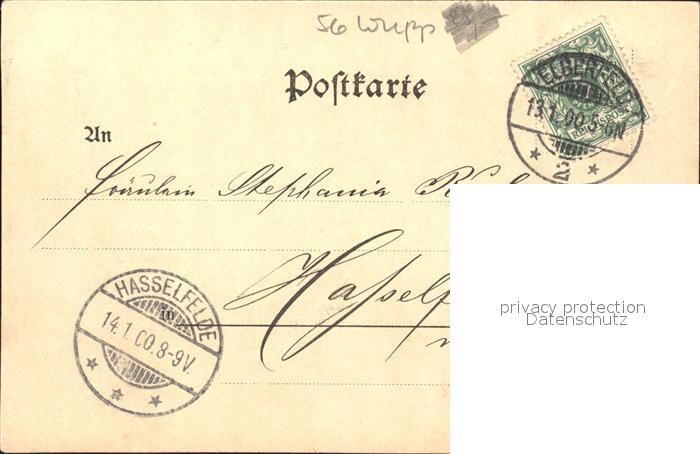 56 Wupp
Postkarte
ELBERFELD
13.1.00.5-6N
2
REICHSPOST
An
Fräulein Stephania
Hasself
HASSELFELDE
14.1.00.8-9V.
in
privacy protection
Datenschutz